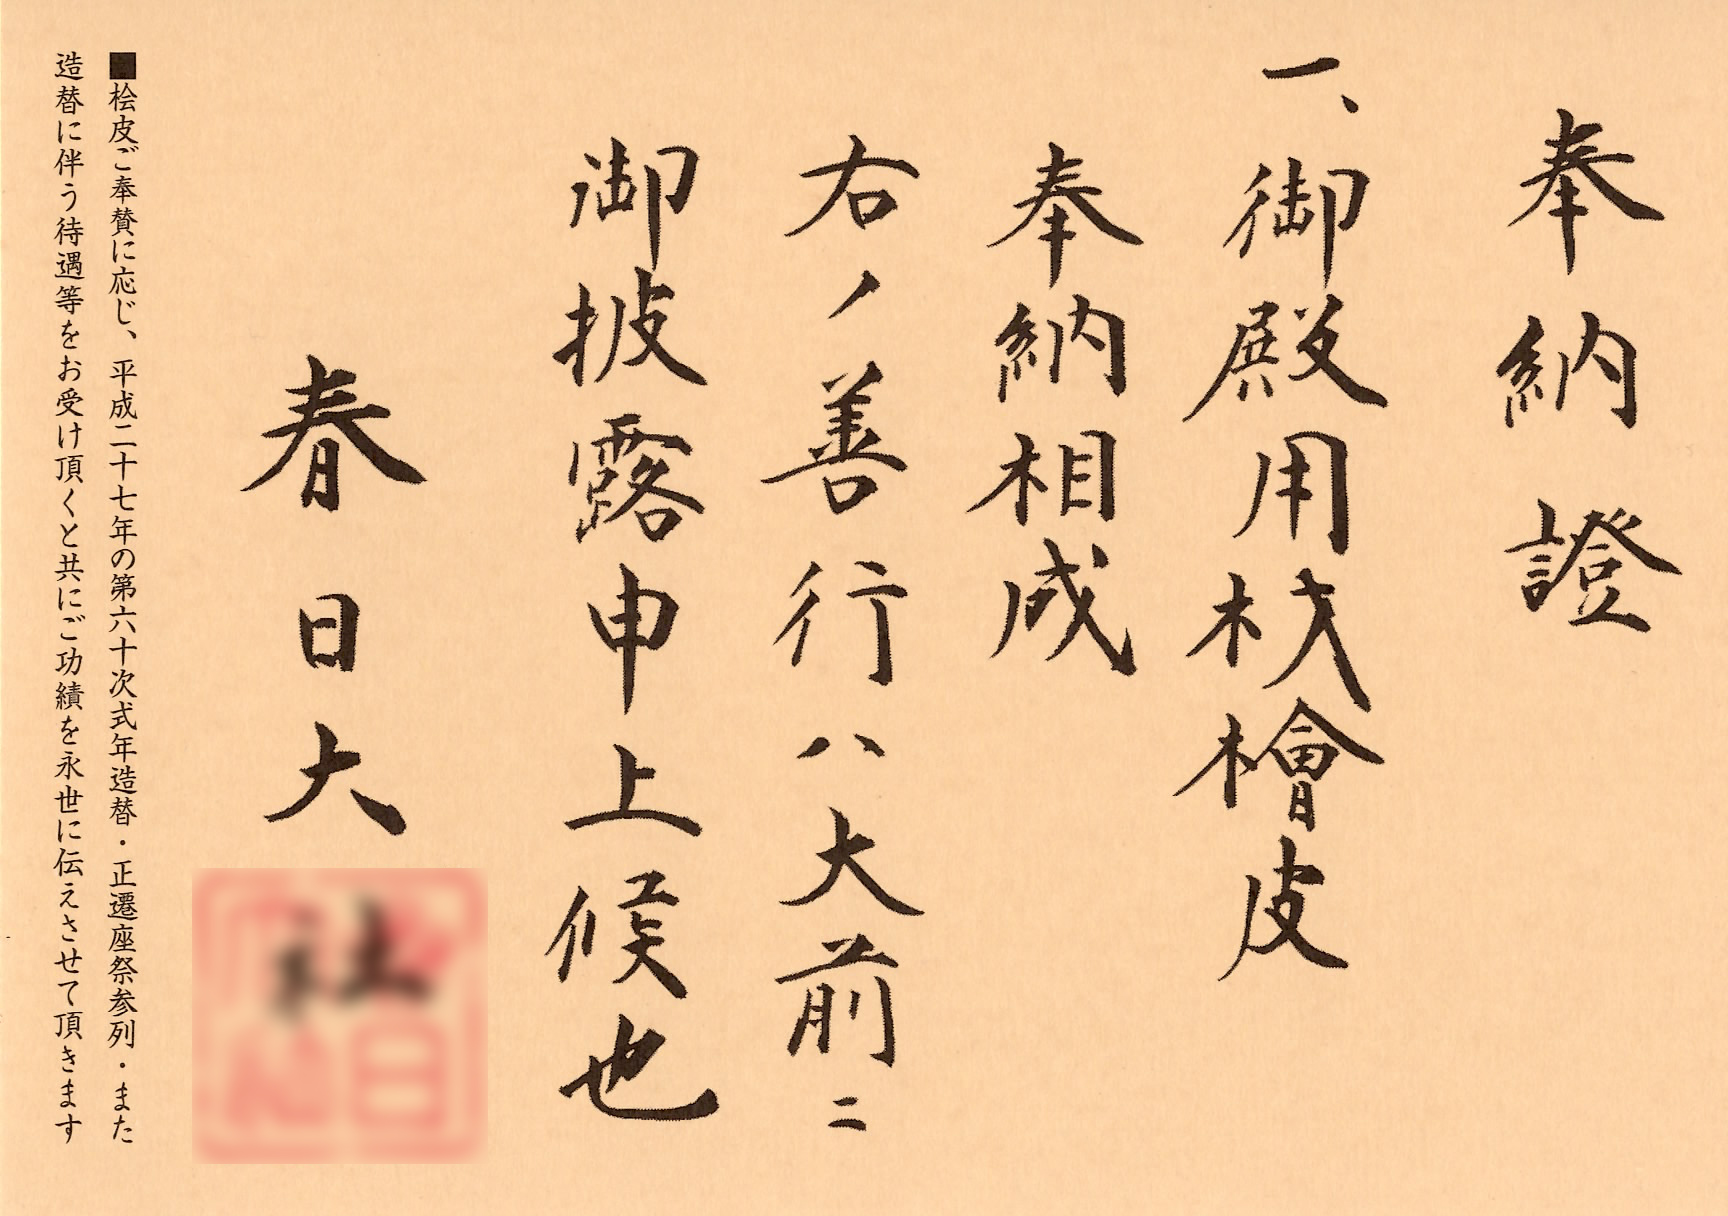 奉納證
一、御殿用材檜皮
奉納相成
右ノ善行ハ大前ニ
御披露申上候也
春日大社
■桧皮ご奉賛に応じ、平成二十七年の第六十次式年造替・正遷座祭参列・また
造替に伴う待遇等をお受け頂くと共にご功績を永世に伝えさせて頂きます